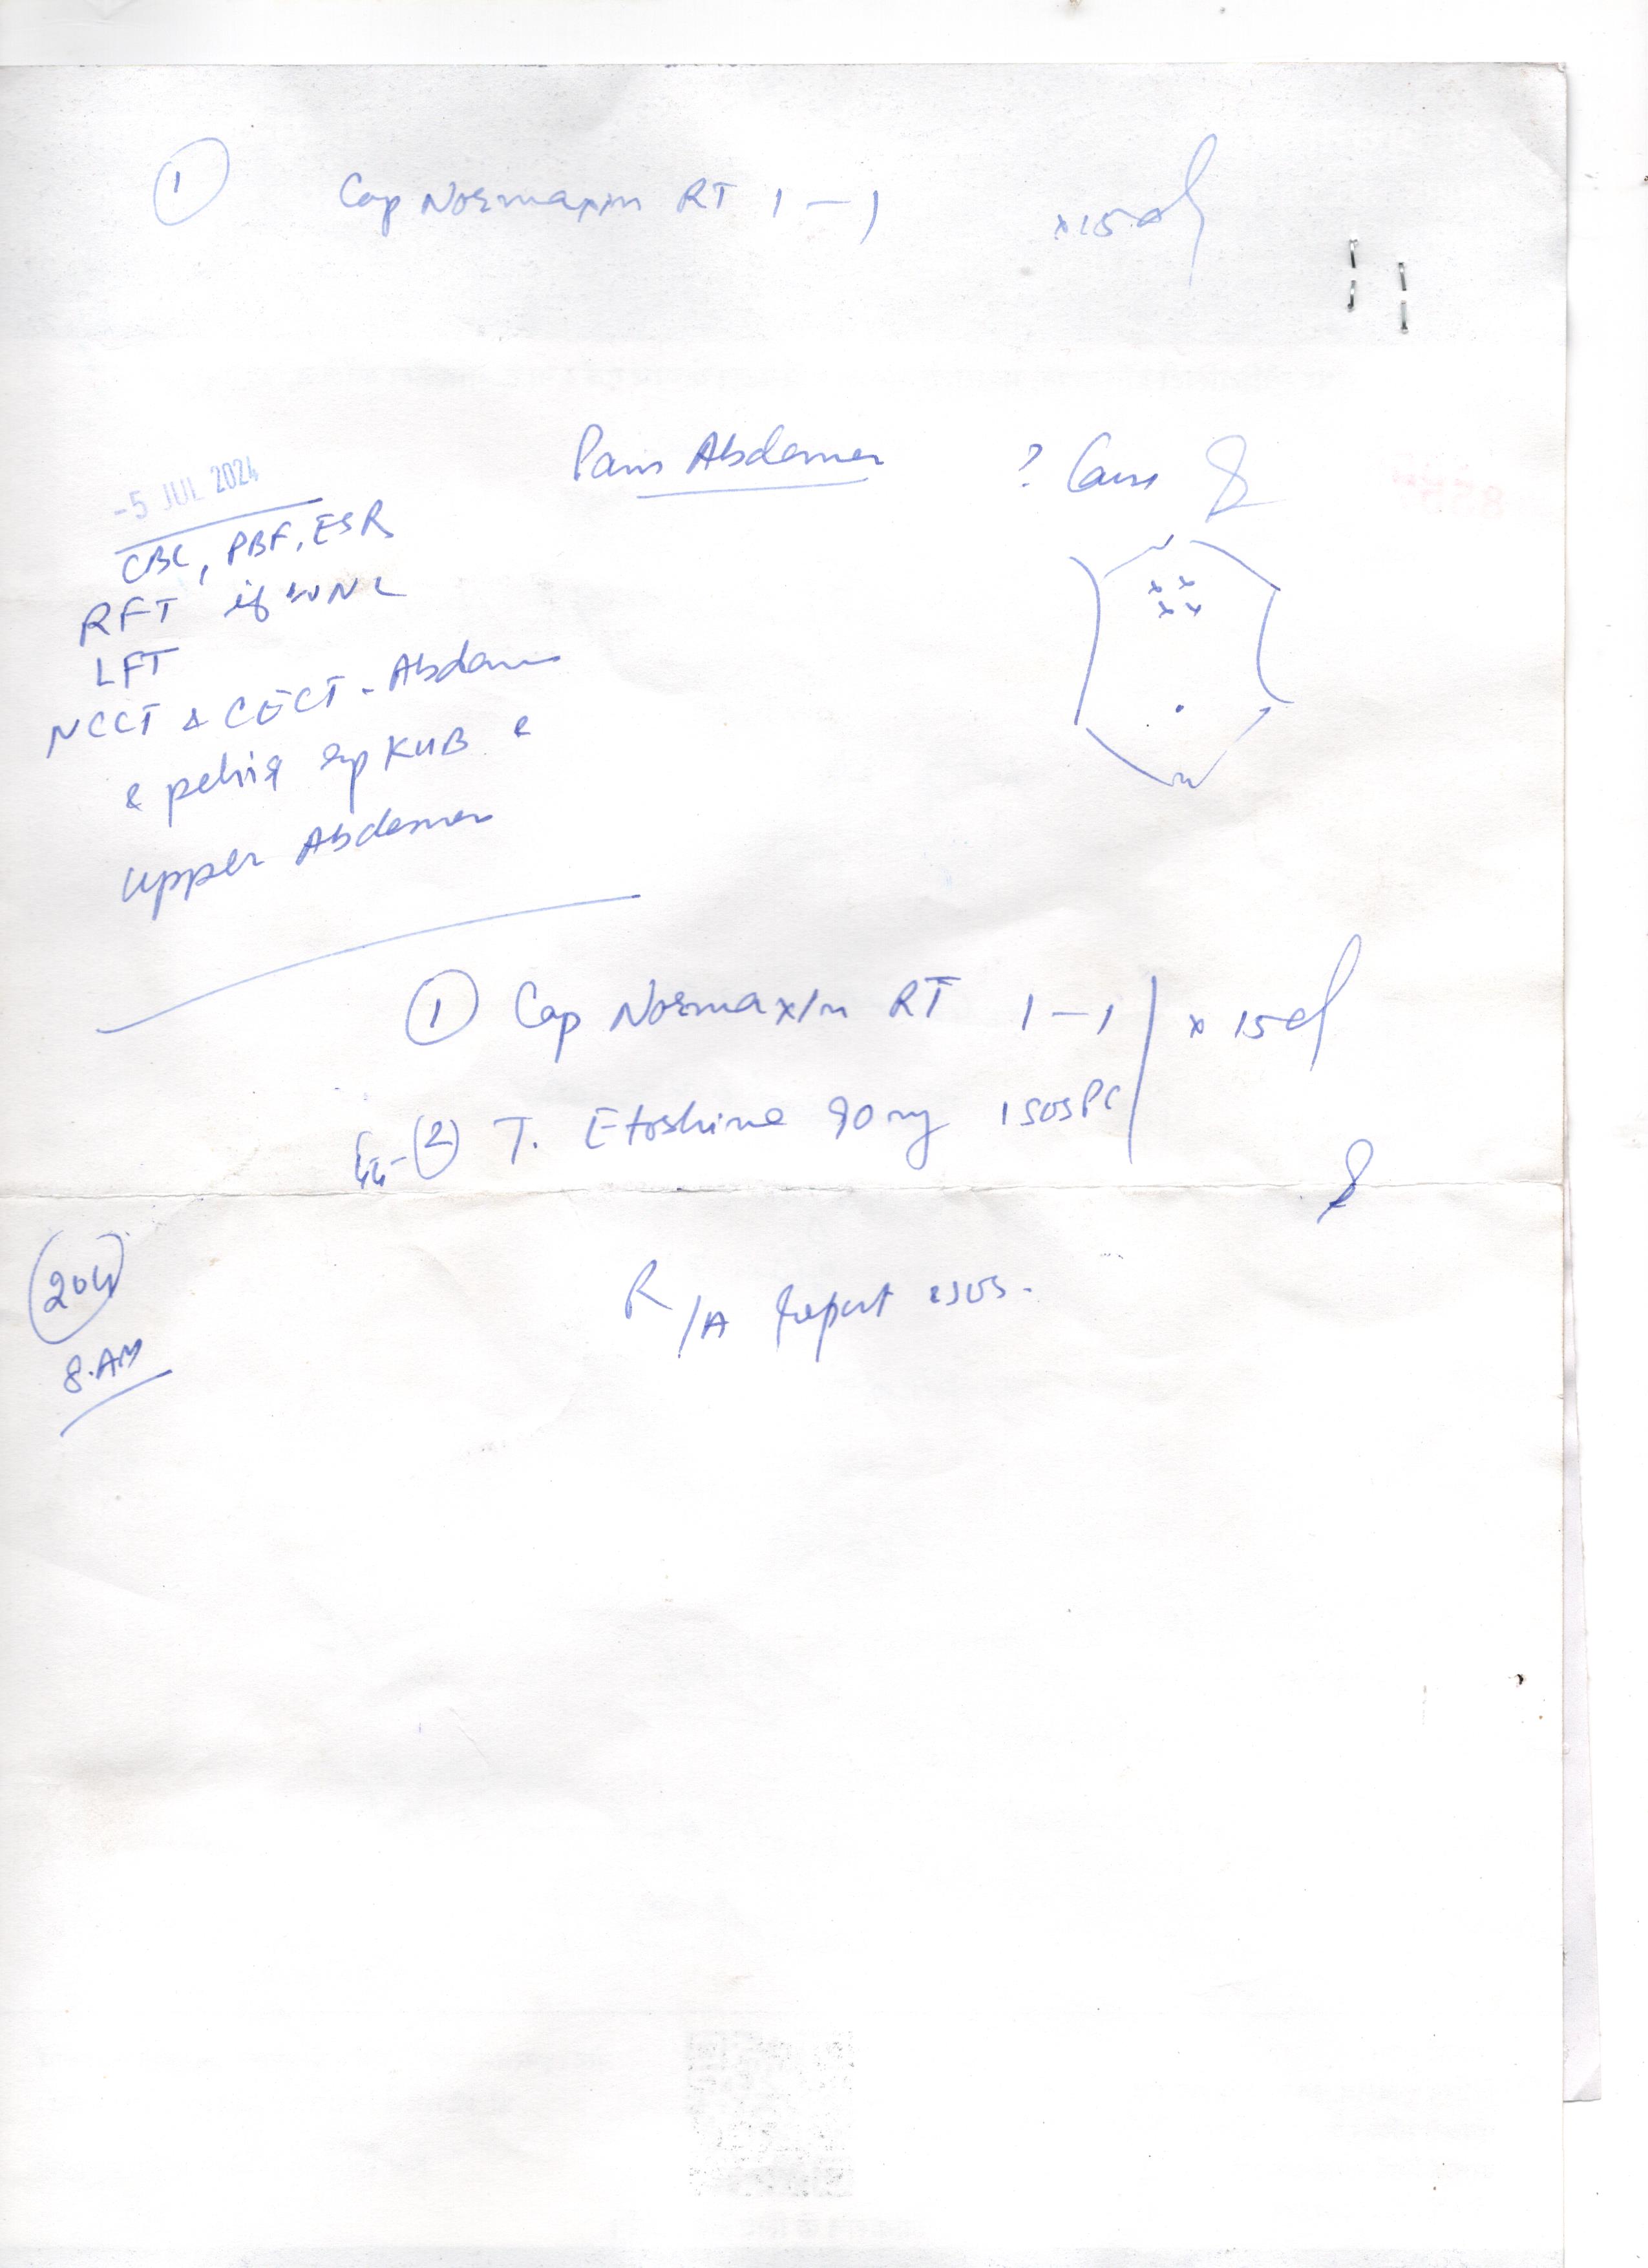 ① Cap Normaxin RT 1–1 x15d
Pain Abdomen ? Cause
-5 JUL 2024
CBC, PBF, ESR
RFT if WNL
LFT
NCCT & CECT - Abdomen
& pelvis KUB &
upper Abdomen
① Cap Normaxin RT 1–1 x 15d
② T. Etoshine 90mg 1 SOS PC
R/A report & SOS.
204
8.AM